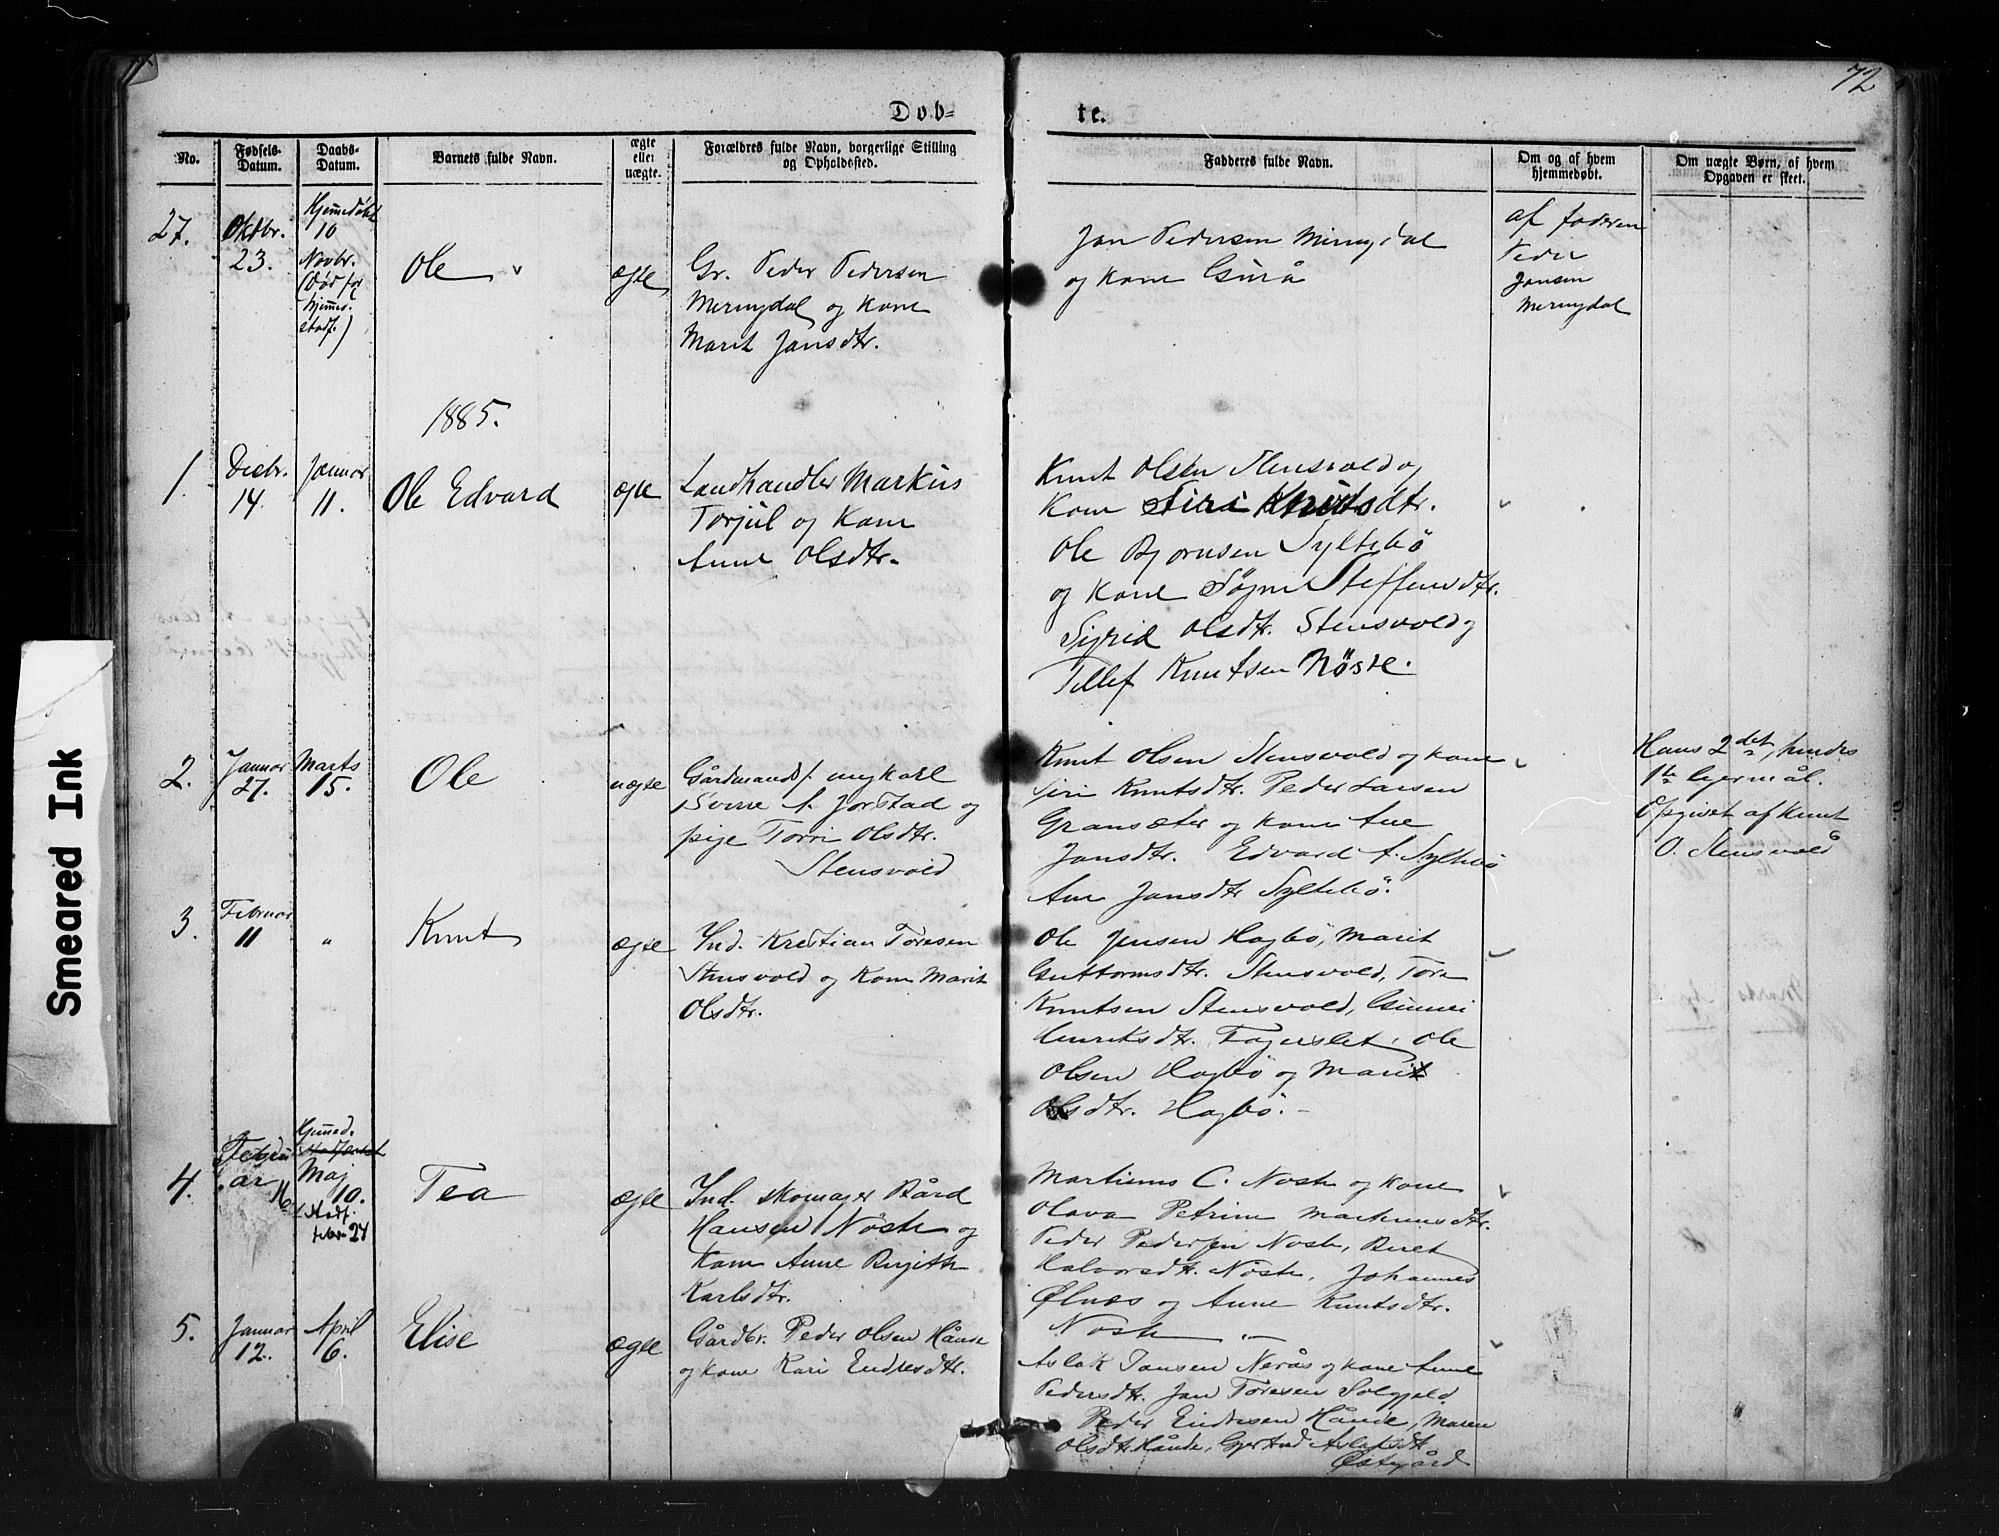 72
Døb-
te.
No.
Fødsels-
Datum.
Daabs-
Datum.
Barnets fulde Navn.
ægte
eller
uægte.
Forældres fulde Navn, borgerlige Stilling
og Opholdssted.
Faddernes fulde Navn.
Om og af hvem
hjemmedøbt.
Om uægte Børn, af hvem
Opgaven er skeet.
27.
Oktbr.
23.
Hjemmedøbt
10
Novbr.
(Død før
hjemme-
stadf.)
Ole
ægte
Gr. Peder Pedersen
Mermydal og Kone
Marit Jansdtr.
Jan Pedersen Mermydal
og Kone Gurå
af faderen
Peder
Jansen
Mermydal
1885.
1.
Decbr.
14.
Januar
11.
Ole Edvard
ægte
Landhandler Markus
Torjul og Kone
Anne Olsdtr.
Knut Olsen Stensvold og
Kone Siri Knutsdtr.
Ole Bjørnsen Syltebø
og Kone Søgni Steffensdtr.
Sigrid Olsdtr. Stensvold og
Tellef Knutsen Nøste.
2.
Januar
27.
Marts
15.
Ole
uægte
Gårdmands. ungkarl
Sverre A. Jorstad og
pige Torri Olsdtr.
Stensvold
Knut Olsen Stensvold og Kone
Siri Knutsdtr. Peder Larsen
Gransæter og Kone Ane
Jansdtr. Edvard A. Syltebø
Ane Jansdtr Syltebø.
Hans 2det, hendes
1te leiermål.
Opgivet af Knut
O. Stensvold
3.
Februar
11
"
Knut
ægte
Ind. Kristian Toresen
Stensvold og Kone Marit
Olsdtr.
Ole Jensen Hagbø, Marit
Guttormsdtr. Stensvold, Tore
Knutsen Stensvold, Gunnei
Henriksdtr. Fagerslet, Ole
Olsen Hagbø og Marit
Olsdtr. Hagbø.
4.
Febru
ar
16
Hjemmed.
Maj
10.
Stadf.
febr. 24
Tea
ægte
Ind. skomager Bård
Hansen Nøste og
Kone Anne Birgitte
Karlsdtr.
Martinus C. Nøste og Kone
Olava Petrine Martinusdtr.
Peder Pedersen Nøste, Beret
Halvorsdtr. Nøste, Johannes
Ølnæs og Anne Knutsdtr.
Nøste
5.
Januar
12.
April
6.
Elise
ægte
Gårdbr. Peder Olsen Hånde
og Kone Kari Endresdtr.
Aslak Jansen Nerås og Kone Anne
Pedersdtr. Jan Toresen Solgjeld
Peder Endresen Hånde, Maren
Olsdtr. Hånde, Gjertrud Aslaksdtr.
Østigård
Smeared Ink